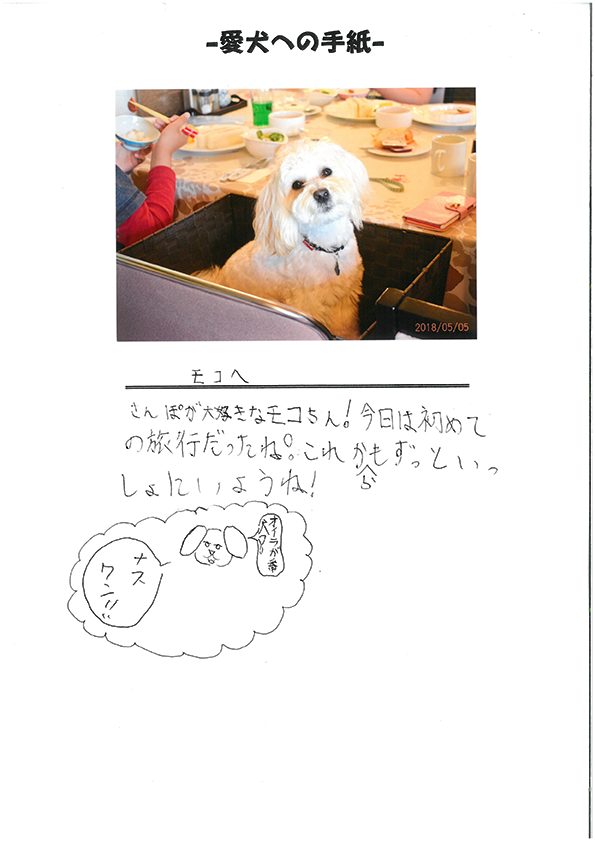 -愛犬への手紙-
2018/05/05
モコへ
さんぽが大好きなモコちん!今日は初めて
の旅行だったね。これからもずっといっ
しょにいようね!
オイラが番
犬ワン
ナス
ワン!!